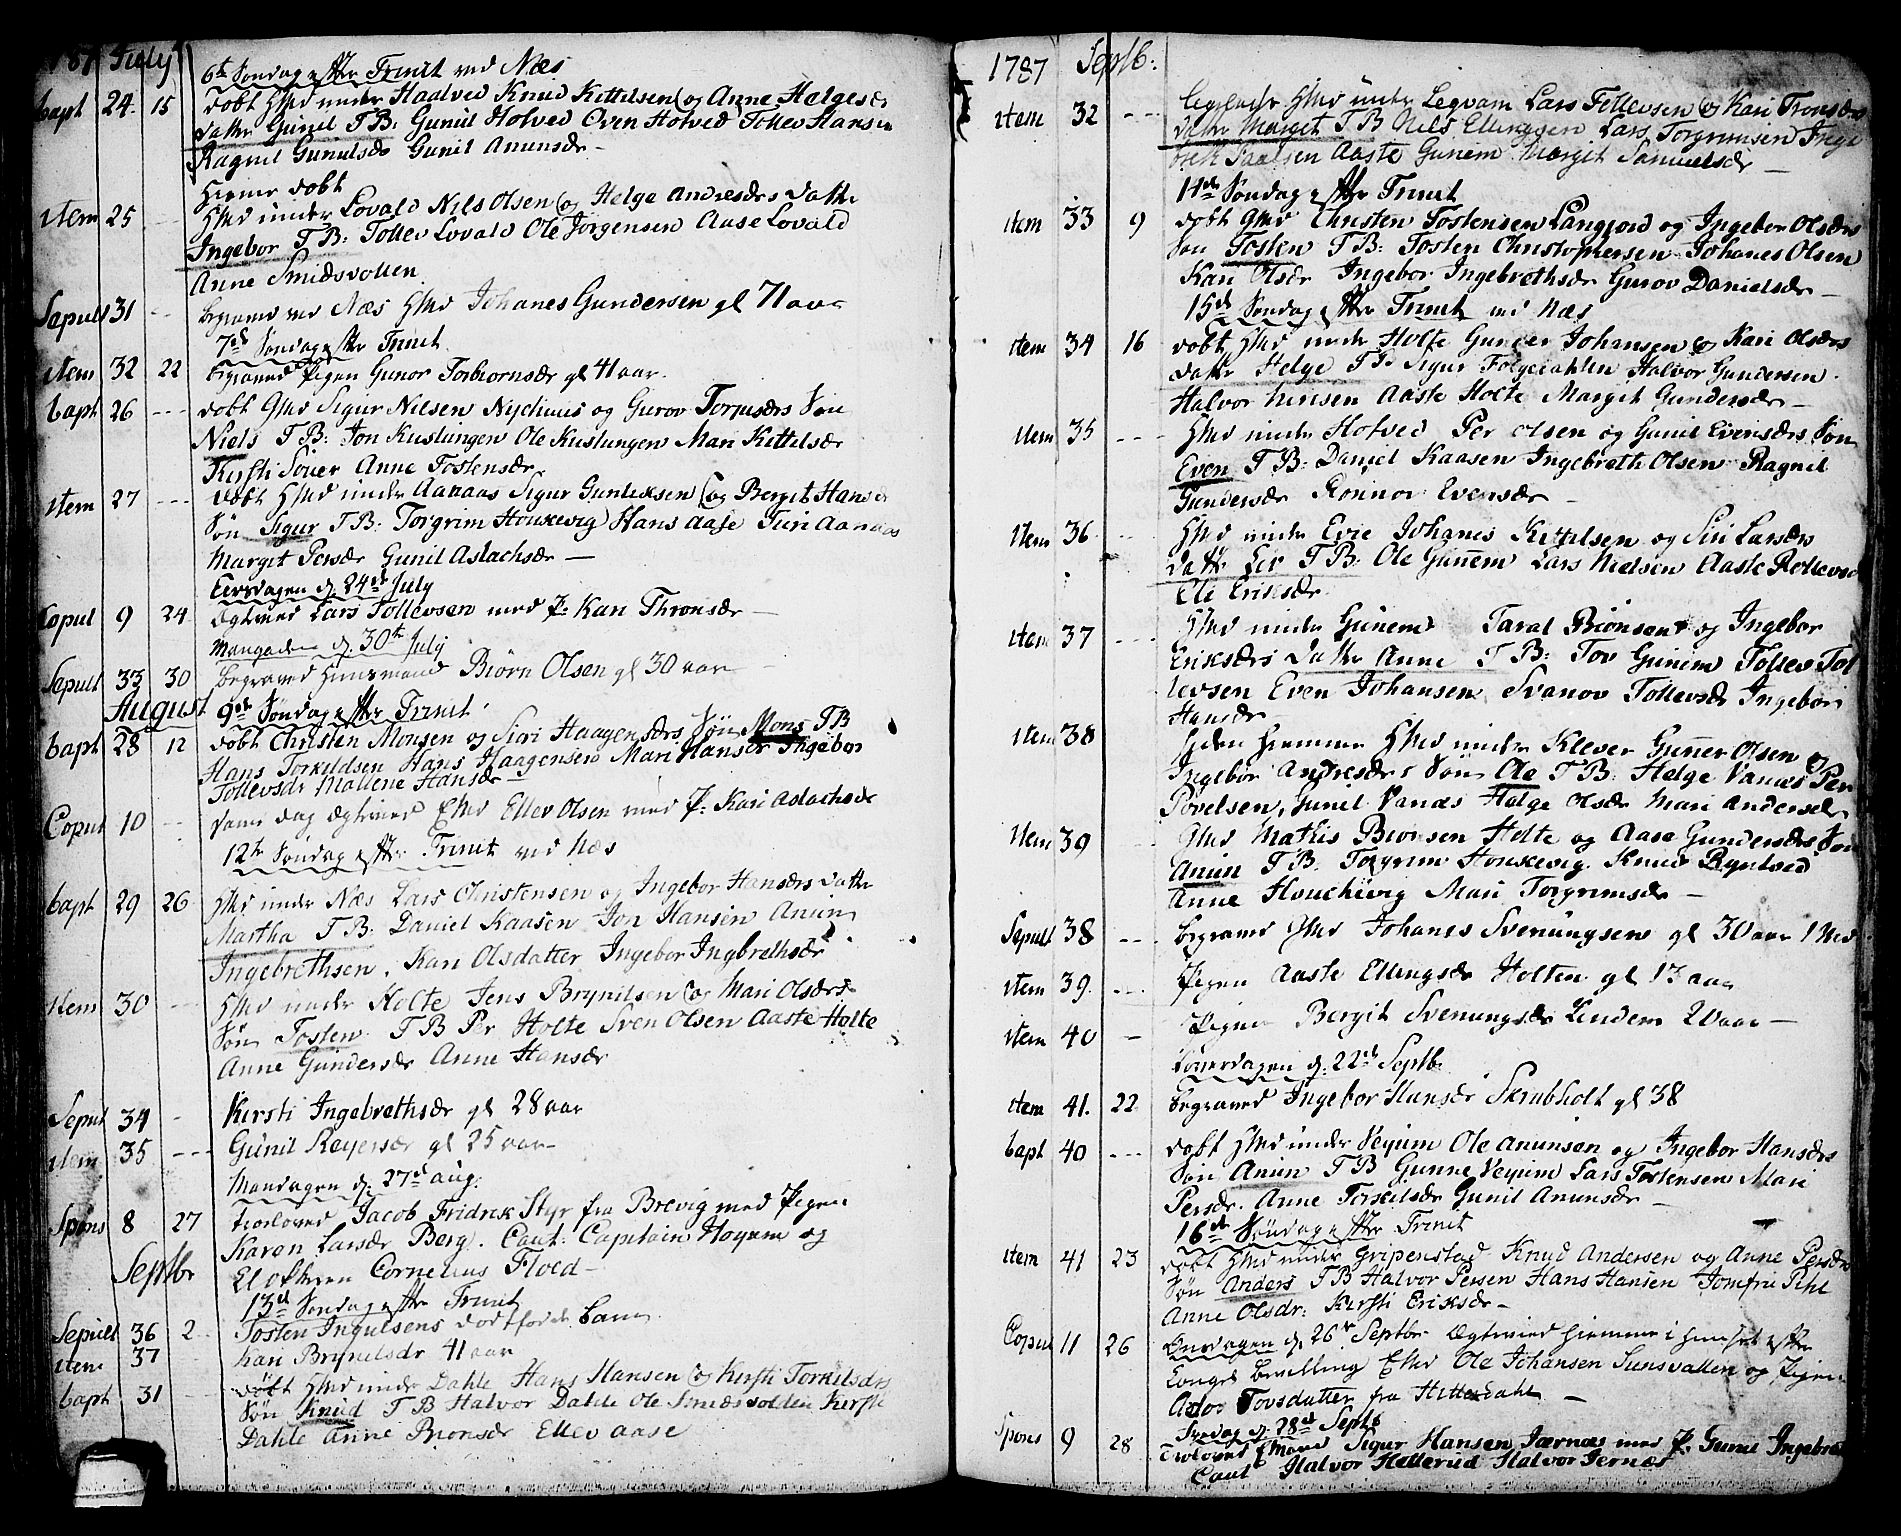 1787 July
6te Søndag efter Trinit ved Næs
bapt 24 15 døbt Hmd under Haatved Knud Kittilsen og Anne Helgesdr
datter Gunil T B: Gunil Hotved Even Hotved Tollev Hansen
Ragnil Gunulsdr Gunil Anunsdr —
Hieme døbt
item 25 --- Hmd under Lovald Nils Olsen og Helge Andresdrs datter
Ingebor T B: Tollev Lovald Ole Jørgensen Aase Lovald
Anne Smidsvollen
Sepult 31 -- begraved ved Næs Hmd Johanes Gundersen gl 71 aar
7de Søndag efter Trinit
item 32 22 begraved Pigen Gunor Torbiornsdr gl 41 aar.
bapt 26 --- døbt Gmd Sigur Nilsen Nyehuus og Gurov Torjusdrs Søn
Niels T B: Jon Kuslungen Ole Kuslungen Mari Kittilsdr
Kirsti Anne Tostensdr
item 27 --- døbt Hmd under Aanaas Sigur Gunleksen og Bergit Hansdr
Søn Sigur T B: Torgrim Houkevig Hans Aase Guri Aanaas
Margit Persdr Gunil Aslachsdr —
Tirsdagen d. 24de July
Copul 9 24 Egteviet Lars Tollevsen med P. Kari Thronsdr —
Mandagen d. 30te July
Sepult 33 30 begraved Huusmand Biörn Olsen gl 30 aar
August 9de Søndag efter Trinit
bapt 28 12 døbt Christen Monsen og Siri Haagensdrs Søn Mons T B
Hans Torkildsen Hans Haagensen Mari Hansdr Ingebor
Tollevsdr Mallene Hansdr
Copul 10 -- samme dag Egteviet Emd Ellev Olsen med P: Kari Aslachsdr
12te Søndag efter Trinit ved Næs
bapt 29 26 Hmd under Næs Lars Christensen og Ingebor Hansdrs datter
Martha T B: Daniel Kaasen Jon Hansen Anun
Ingebrethsen. Kari Olsdatter Ingebor Ingbrethsdr
item 30 --- Hmd under Holte Jens Brynilsen og Mari Olsdrs
Søn Tosten T B Per Holte Sven Olsen Aaste Holte
Anne Gundersdr Anne Hansdr
Sepult 34 - Kirsti Ingebrethsdr gl 28 aar
item 35 --- Gunil Reyersdr gl 25 aar —
Mandagen d. 27de aug.
Spons 8 27 trolovet Jacob Fridrik Styr fra Brevig med Pigen
Karen Larsdr Berg. Caut: Captain Hoyum og
Septbr Cornelius Floed —
13de Søndag efter Trinit
Sepult 36 2 Tosten Ingulsens dødfødde barn
item 37 Kari Brynilsdr 41 aar
bapt 31 døbt Hmd under Dahle Hans Hansen og Kirsti Torkilsdrs
Søn Knud T B Halvor Dahle Ole Smidsvolden Kirsti
Dahle Anne Bionsdr Ellev Aase
1787 Septb:
item 32 --- Hmd under Legvam Lars Tellevsen og Kari Tronsdrs
datter Marget T B Nils Ellingsen Lars Torgrimsen
Paalsen Aaste Gunem Margit Samuelsdr
14de Søndag efter Trinit
item 33 9 døbt Gmd Christen Tostensen Langjord og Ingebor Olsdrs
Søn Tosten T B: Tosten Christophersen Johanes Olsen
Kari Olsdr Ingebor Ingebrethsdr Gurov Danielsdr —
15de Søndag efter Trinit ved Næs
item 34 16 døbt Hmd under Holte Gunder Johansen og Kari Olsdrs
datter Helge T B Sigur Folgedahlen Halvor Gundersen
Halvor Nilsen Aaste Holte Margit Gundersdr —
item 35 --- Hmd under Hotved Per Olsen og Gunil Evensdrs Søn
Even T B: Daniel Kaasen Ingebreth Olsen Ragnil
Gundersdr Ronnov Evensdr —
item 36 --- Hmd under Evie Johanes Kittilsen og Siri Larsdrs
datter Liv T B: Ole Gunem Lars Nielsen Aaste Rollevsdr
Eli Eriksdr
item 37 --- Hmd under Gunem Taral Bionsen og Ingebor
Eriksdrs datter Anne T B: Tov Gunem Tollev Tol
levsen Even Johansen Svanov Tollevsdr Ingebor
Hansdr
item 38 Hmd under Klever Guner Olsen og
Ingebor Andresdrs Søn Ole T B: Helge Vanæs Per
Povelsen, Gunil Vanæs Helge Olsdr Mari Andersdr
item 39 -- Gmd Mathis Bionsen Holte og Aase Gundersdrs Søn
Anun T B: Torgrim Houkevig Knud Ryntved
Anne Houchevig Mari Torgrimsdr —
Sepult 38 --- begraved Gmd Johanes Svenungsen gl 30 aar 1 Md
item 39 --- Pigen Aaste Ellingsdr Holten gl 13 aar
item 40 — Pigen Bergit Svenungsdr Lindem 20 aar —
Løverdagen d. 22de Septb
item 41. 22 begraved Ingebor Hansdr Skrubholt gl 38
bapt 40 --- døbt Hmd under Veyum Ole Anunsen og Ingebor Hansdrs
Søn Anun T B Gunne Veyum Lars Tostensen Mari
Persdr. Anne Torkilsdr Gunil Anunsdr —
16de Søndag efter Trinit
item 41 23 døbt Hmd under Gripenstad Knud Andersen og Anne Persdrs
Søn Anders T B Halvor Persen Hans Hansen Jomfru Pihl
Anne Olsdr: Kirsti Eriksdr —
Copul 11 26 Onsdagen d 26de Septbr Egteviet hiemme i huuset efter
Konges bevilling Emd Ole Johansen Sunsvallen og Pigen
Aslov Tovsdatter fra Hitterdahl —
Fredag d. 28de Septb
Spons 9 28 Trolovet Sigur Hansen Jærnæs med P. Gunil Ingebreths
Caut Halvor Hetterud Halvor Jernæs